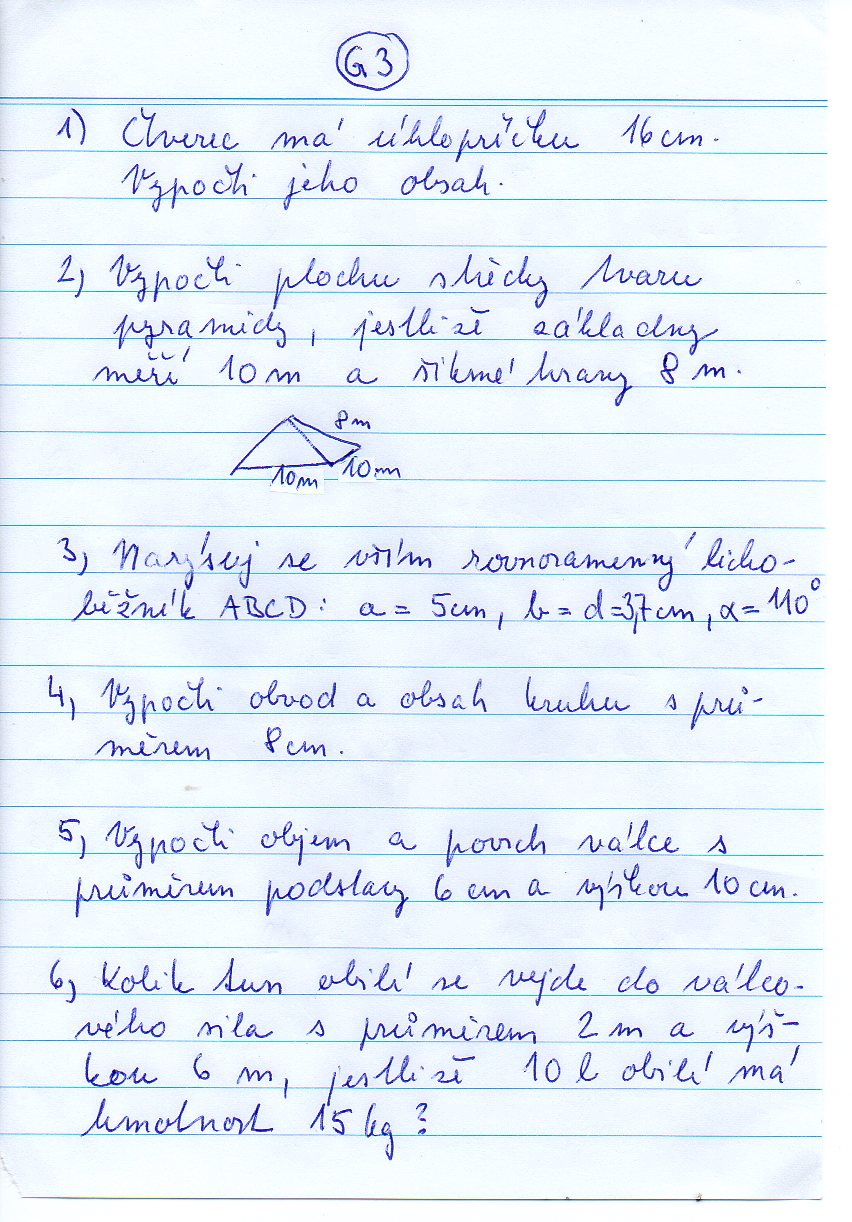 G3
1) Čtverec má úhlopříčku 16 cm.
Vypočti jeho obsah.
2) Vypočti plochu střechy tvaru
pyramidy, jestliže základny
měří 10 m a šikmé hrany 8 m.
8 m
10 m 10 m
3) Narýsuj se vším rovnoramenný licho-
běžník ABCD: a = 5 cm, b = d = 3,7 cm, α = 110°
4) Vypočti obvod a obsah kruhu s prů-
měrem 8 cm.
5) Vypočti objem a povrch válce s
průměrem podstavy 6 cm a výškou 10 cm.
6) Kolik tun obilí se vejde do válco-
vého sila s průměrem 2 m a výš-
kou 6 m, jestliže 10 l obilí má
hmotnost 15 kg?